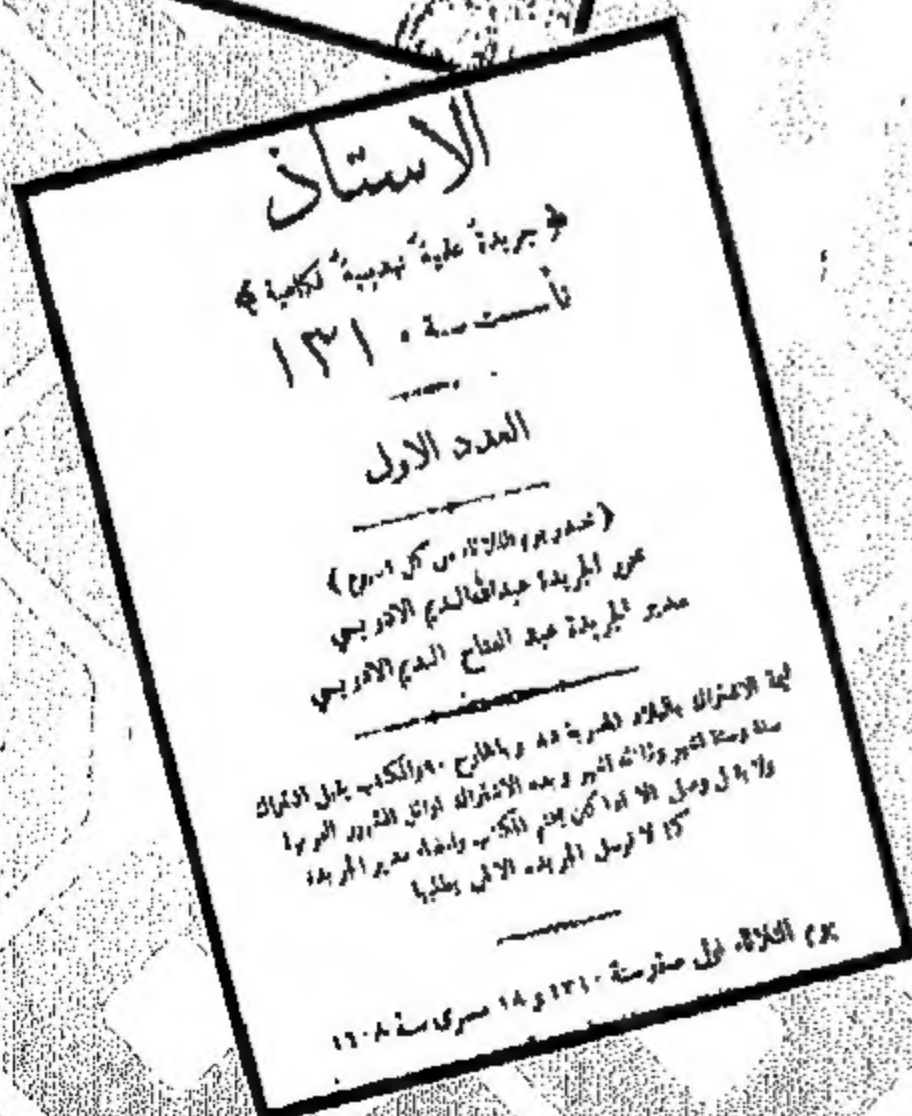 الاستاذ
﴿ جريدة علمية تهذيبية فكاهية ﴾
تأسست سنة ١٣١٠
العدد الاول
( تصدر يوم الثلاثاء من كل اسبوع )
محرر الجريدة عبدالله النديم الادريسي
مدير الجريدة عبد الفتاح النديم الادريسي
قيمة الاشتراك بالبلاد المصرية وبالخارج والمكتب يقبل اشتراك
سنة وستة اشهر وثلاثة اشهر وبدء الاشتراك اوائل الشهور
ولا يقبل وصل الا اذا كان بختم المكتب وامضاء مدير الجريدة
كما لا ترسل الجريدة الا لمن يطلبها
يوم الثلاثاء اول صفر سنة ١٣١٠ و ١٨ مسرى سنة ١٦٠٨